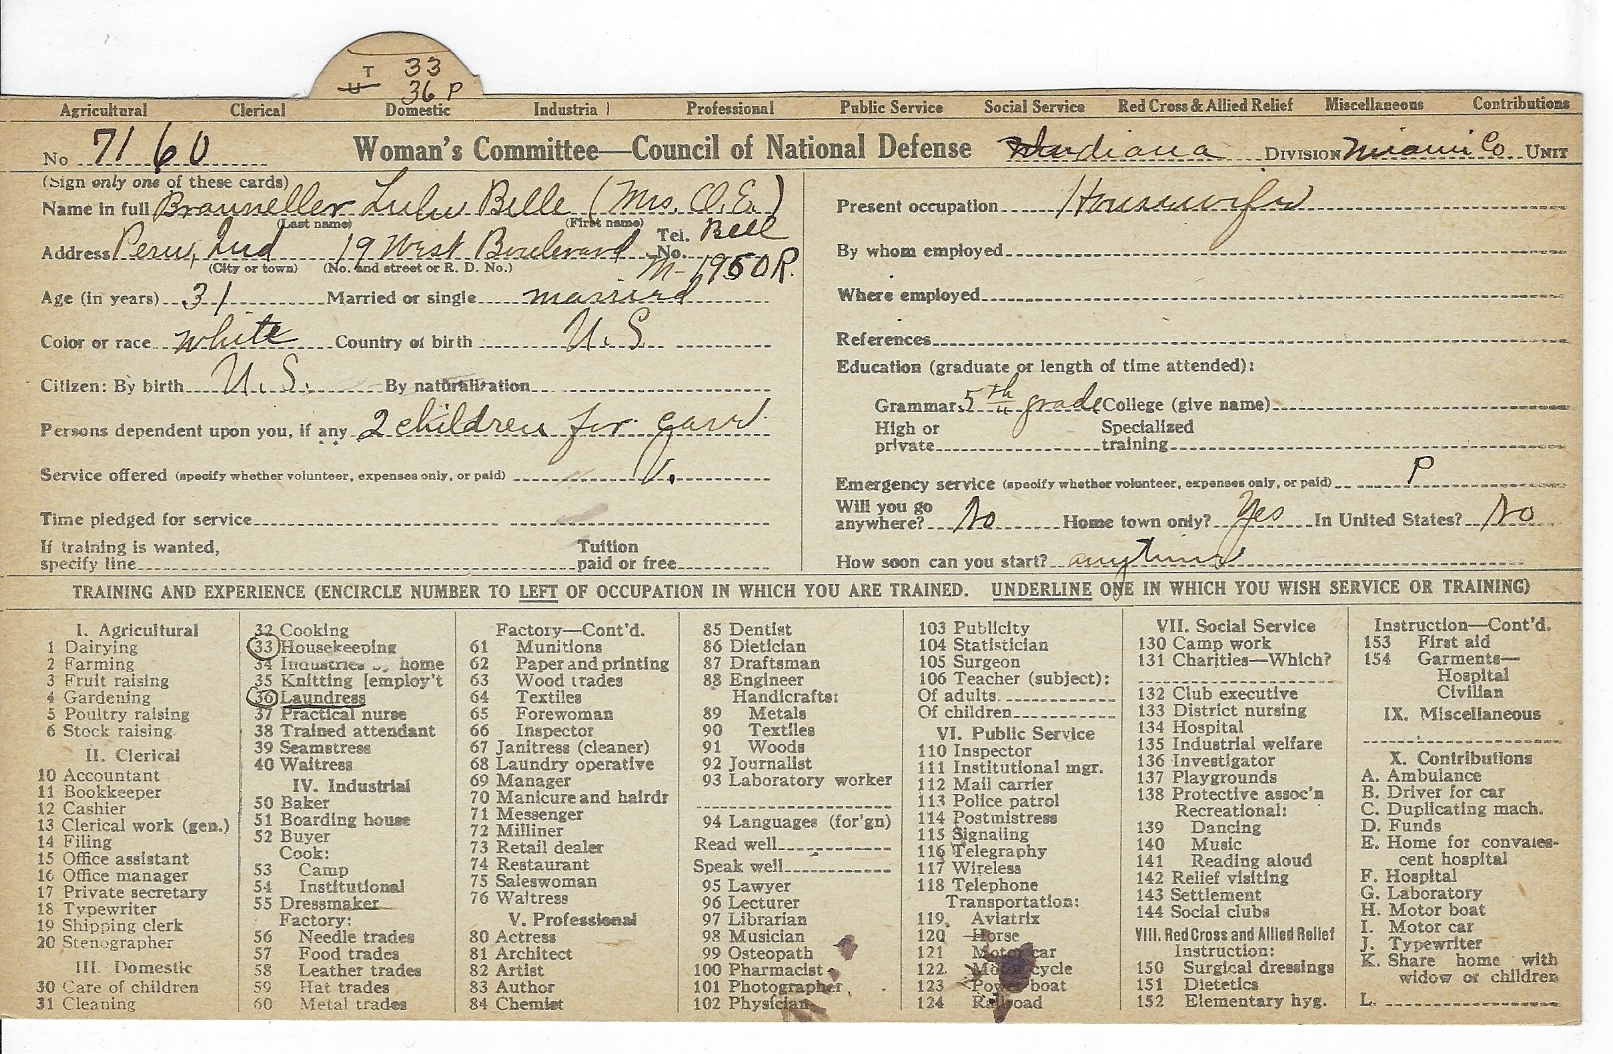 T 33
U 36 P
Agricultural Clerical Domestic Industrial Professional Public Service Social Service Red Cross & Allied Relief Miscellaneous Contributions
No 7160 Woman's Committee—Council of National Defense Indiana DIVISION Miami Co UNIT
(Sign only one of these cards)
Name in full Brauneller Lulu Belle (Mrs. O.E.)
(Last name) (First name)
Address Peru, Ind 19 West Boulevard Tel. No. Bell M-1950R.
(City or town) (No. and street or R. D. No.)
Age (in years) 31 Married or single married
Color or race white Country of birth U.S.
Citizen: By birth U.S. By naturalization
Persons dependent upon you, if any 2 children for
Service offered (specify whether volunteer, expenses only, or paid) V.
Time pledged for service
If training is wanted, specify line Tuition paid or free
Present occupation Housewife
By whom employed
Where employed
References
Education (graduate or length of time attended):
Grammar 5th grade College (give name)
High or private Specialized training
Emergency service (specify whether volunteer, expenses only, or paid) P
Will you go anywhere? No Home town only? Yes In United States? No
How soon can you start? anytime
TRAINING AND EXPERIENCE (ENCIRCLE NUMBER TO LEFT OF OCCUPATION IN WHICH YOU ARE TRAINED. UNDERLINE ONE IN WHICH YOU WISH SERVICE OR TRAINING)
I. Agricultural
1 Dairying
2 Farming
3 Fruit raising
4 Gardening
5 Poultry raising
6 Stock raising
II. Clerical
10 Accountant
11 Bookkeeper
12 Cashier
13 Clerical work (gen.)
14 Filing
15 Office assistant
16 Office manager
17 Private secretary
18 Typewriter
19 Shipping clerk
20 Stenographer
III. Domestic
30 Care of children
31 Cleaning
32 Cooking
33 Housekeeping
34 Industries by home
35 Knitting [employ't
36 Laundress
37 Practical nurse
38 Trained attendant
39 Seamstress
40 Waitress
IV. Industrial
50 Baker
51 Boarding house
52 Buyer
Cook:
53 Camp
54 Institutional
55 Dressmaker
Factory:
56 Needle trades
57 Food trades
58 Leather trades
59 Hat trades
60 Metal trades
Factory—Cont'd.
61 Munitions
62 Paper and printing
63 Wood trades
64 Textiles
65 Forewoman
66 Inspector
67 Janitress (cleaner)
68 Laundry operative
69 Manager
70 Manicure and hairdr
71 Messenger
72 Milliner
73 Retail dealer
74 Restaurant
75 Saleswoman
76 Waitress
V. Professional
80 Actress
81 Architect
82 Artist
83 Author
84 Chemist
85 Dentist
86 Dietician
87 Draftsman
88 Engineer
Handicrafts:
89 Metals
90 Textiles
91 Woods
92 Journalist
93 Laboratory worker
94 Languages (for'gn)
Read well
Speak well
95 Lawyer
96 Lecturer
97 Librarian
98 Musician
99 Osteopath
100 Pharmacist
101 Photographer
102 Physician
103 Publicity
104 Statistician
105 Surgeon
106 Teacher (subject):
Of adults
Of children
VI. Public Service
110 Inspector
111 Institutional mgr.
112 Mail carrier
113 Police patrol
114 Postmistress
115 Signaling
116 Telegraphy
117 Wireless
118 Telephone
Transportation:
119 Aviatrix
120 Horse
121 Motor car
122 Motor cycle
123 Power boat
124 Railroad
VII. Social Service
130 Camp work
131 Charities—Which?
132 Club executive
133 District nursing
134 Hospital
135 Industrial welfare
136 Investigator
137 Playgrounds
138 Protective assoc'n
Recreational:
139 Dancing
140 Music
141 Reading aloud
142 Relief visiting
143 Settlement
144 Social clubs
VIII. Red Cross and Allied Relief
Instruction:
150 Surgical dressings
151 Dietetics
152 Elementary hyg.
Instruction—Cont'd.
153 First aid
154 Garments—
Hospital
Civilian
IX. Miscellaneous
X. Contributions
A. Ambulance
B. Driver for car
C. Duplicating mach.
D. Funds
E. Home for convales-
cent hospital
F. Hospital
G. Laboratory
H. Motor boat
I. Motor car
J. Typewriter
K. Share home with
widow or children
L.